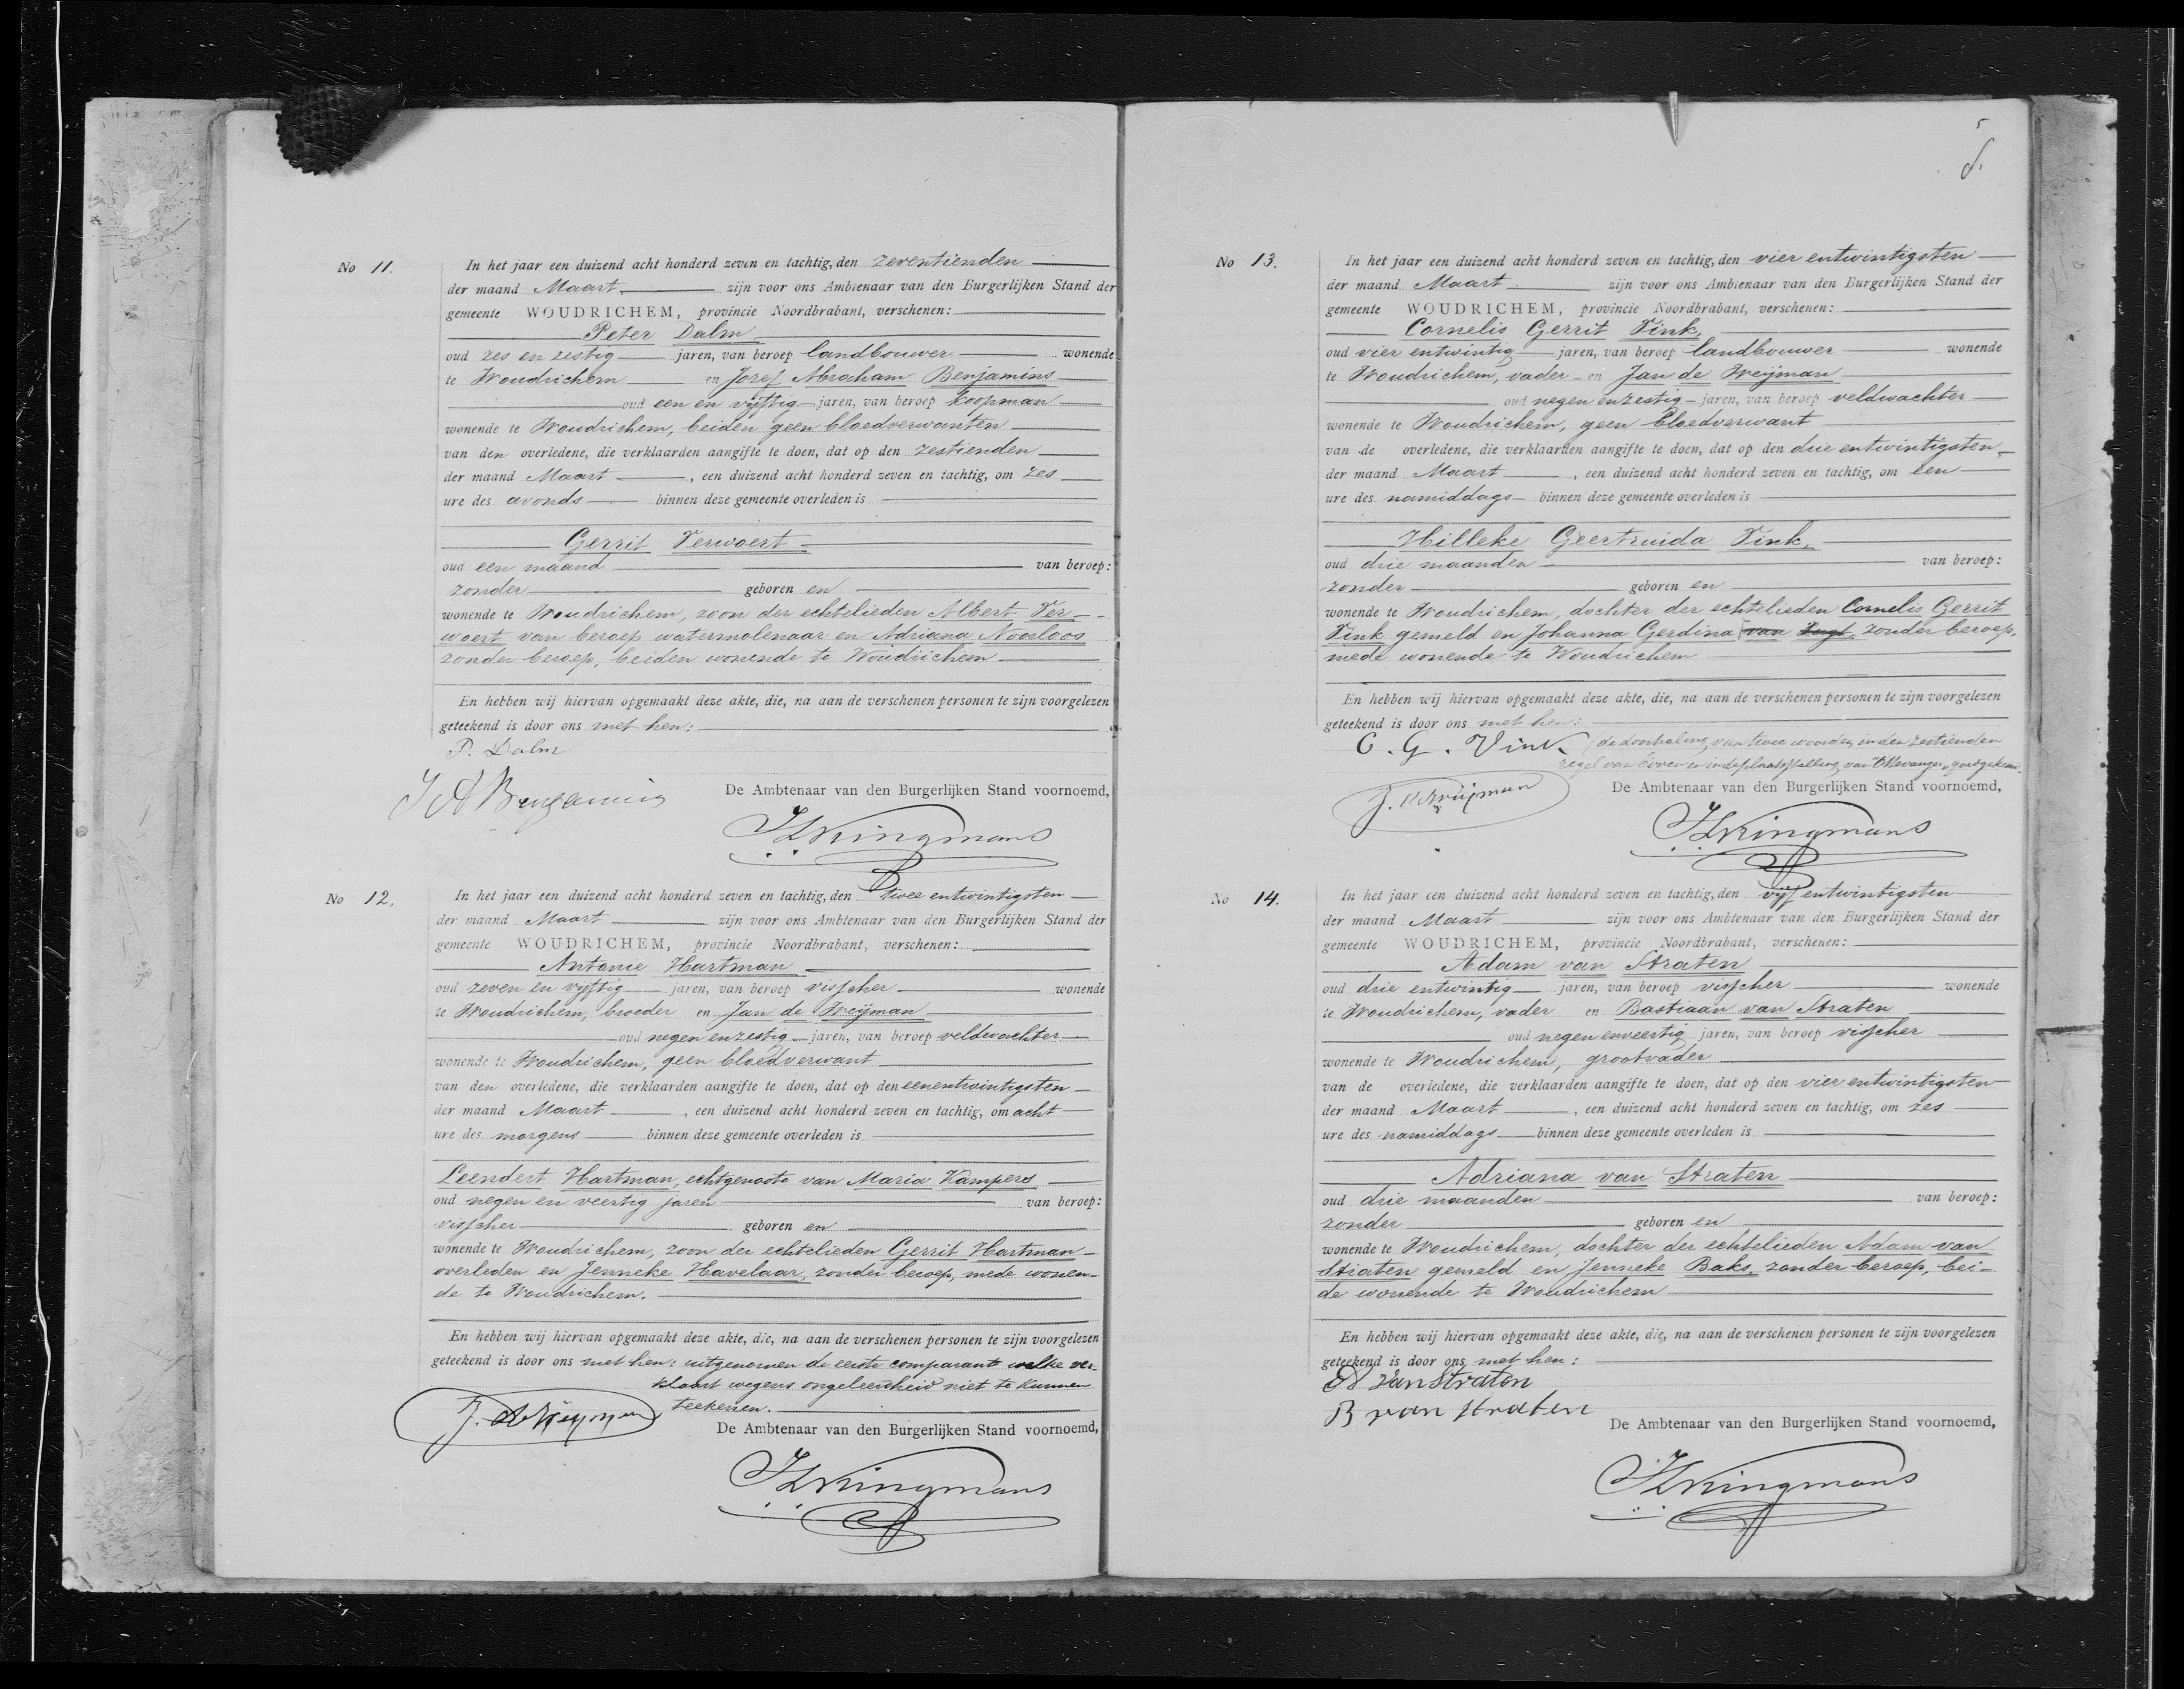 No 11.
In het jaar een duizend acht honderd zeven en tachtig, den zeventienden
der maand Maart zijn voor ons Ambtenaar van den Burgerlijken Stand der
gemeente WOUDRICHEM, provincie Noordbrabant, verschenen:
Peter Dalm
oud zes en zestig jaren, van beroep landbouwer wonende
te Woudrichem en Jozef Abraham Benjamins
oud een en vijftig jaren, van beroep koopman
wonende te Woudrichem, beiden geen bloedverwanten
van den overledene, die verklaarden aangifte te doen, dat op den zestienden
der maand Maart, een duizend acht honderd zeven en tachtig, om zes
ure des avonds binnen deze gemeente overleden is
Gerrit Verwoert
oud een maand van beroep:
zonder geboren en
wonende te Woudrichem, zoon der echtelieden Albert Ver-
woert van beroep watermolenaar en Adriana Noorloos
zonder beroep, beiden wonende te Woudrichem
En hebben wij hiervan opgemaakt deze akte, die, na aan de verschenen personen te zijn voorgelezen
geteekend is door ons met hen:
P. Dalm
J A Benjamins
De Ambtenaar van den Burgerlijken Stand voornoemd,
No 12.
In het jaar een duizend acht honderd zeven en tachtig, den twee entwintigsten
der maand Maart zijn voor ons Ambtenaar van den Burgerlijken Stand der
gemeente WOUDRICHEM, provincie Noordbrabant, verschenen:
Antonie Hartman
oud zeven en vijftig jaren, van beroep visscher wonende
te Woudrichem, broeder en Jan de Weijman
oud negen enzestig jaren, van beroep veldwachter
wonende te Woudrichem, geen bloedverwant
van den overledene, die verklaarden aangifte te doen, dat op den eenentwintigsten
der maand Maart, een duizend acht honderd zeven en tachtig, om acht
ure des morgens binnen deze gemeente overleden is
Leendert Hartman, echtgenoote van Maria Kampers
oud negen en veertig jaren van beroep:
visscher geboren en
wonende te Woudrichem, zoon der echtelieden Gerrit Hartman
overleden en Jenneke Havelaar, zonder beroep, mede wonen-
de te Woudrichem.
En hebben wij hiervan opgemaakt deze akte, die, na aan de verschenen personen te zijn voorgelezen
geteekend is door ons met hen: uitgenomen de eerste comparant welke ver-
klaart wegens ongeleerdheid niet te kunnen
teekenen.
De Ambtenaar van den Burgerlijken Stand voornoemd,
5
No 13.
In het jaar een duizend acht honderd zeven en tachtig, den vier entwintigsten
der maand Maart zijn voor ons Ambtenaar van den Burgerlijken Stand der
gemeente WOUDRICHEM, provincie Noordbrabant, verschenen:
Cornelis Gerrit Vink,
oud vier entwintig jaren, van beroep landbouwer wonende
te Woudrichem, vader en Jan de Weijman
oud negen enzestig jaren, van beroep veldwachter
wonende te Woudrichem, geen bloedverwant
van de overledene, die verklaarden aangifte te doen, dat op den drie entwintigsten
der maand Maart, een duizend acht honderd zeven en tachtig, om een
ure des namiddags binnen deze gemeente overleden is
Hilleke Geertruida Vink,
oud drie maanden van beroep:
zonder geboren en
wonende te Woudrichem, dochter der echtelieden Cornelis Gerrit
Vink gemeld en Johanna Gerdina van zonder beroep,
mede wonende te Woudrichem
En hebben wij hiervan opgemaakt deze akte, die, na aan de verschenen personen te zijn voorgelezen
geteekend is door ons met hen:
C. G. Vink (de doorhaling van twee woorden in den zestienden
regel van boven en indeplaatsstelling van
De Ambtenaar van den Burgerlijken Stand voornoemd,
No 14.
In het jaar een duizend acht honderd zeven en tachtig, den vijf entwintigsten
der maand Maart zijn voor ons Ambtenaar van den Burgerlijken Stand der
gemeente WOUDRICHEM, provincie Noordbrabant, verschenen:
Adam van Straten
oud drie entwintig jaren, van beroep visscher wonende
te Woudrichem, vader en Bastiaan van Straten
oud negen enveertig jaren, van beroep visscher
wonende te Woudrichem, grootvader
van de overledene, die verklaarden aangifte te doen, dat op den vier entwintigsten
der maand Maart, een duizend acht honderd zeven en tachtig, om zes
ure des namiddags binnen deze gemeente overleden is
Adriana van Straten
oud drie maanden van beroep:
zonder geboren en
wonende te Woudrichem, dochter der echtelieden Adam van
Straten gemeld en Jenneke Baks, zonder beroep, bei-
de wonende te Woudrichem
En hebben wij hiervan opgemaakt deze akte, die, na aan de verschenen personen te zijn voorgelezen
geteekend is door ons met hen:
A van Straten
B van Straten
De Ambtenaar van den Burgerlijken Stand voornoemd,